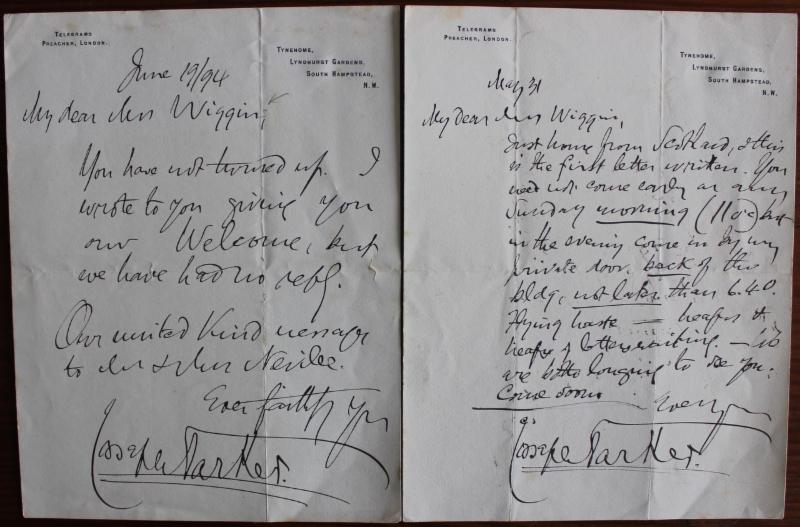 TELEGRAMS
PREACHER, LONDON.
TYNEHOME,
LYNDHURST GARDENS,
SOUTH HAMPSTEAD,
N.W.
June 19/94
My dear Mrs Wiggin,
You have not turned up. I
wrote to you giving you
our Welcome, but
we have had no reply.
Our united kind messages
to Mr & Mrs
Ever faithfy yrs
Joseph Parker.
TELEGRAMS
PREACHER, LONDON.
TYNEHOME,
LYNDHURST GARDENS,
SOUTH HAMPSTEAD,
N.W.
May 31
My dear Mrs Wiggin,
Just home from Scotland, & this
is the first letter written. You
need not come early on any
Sunday morning (11 oc) but
in the evening come in by my
private door, back of the
bldg, not later than 6.40.
Flying haste — heaps &
heaps of letterwriting. —
are both longing to see you.
Come soon.
Ever yrs
Joseph Parker.